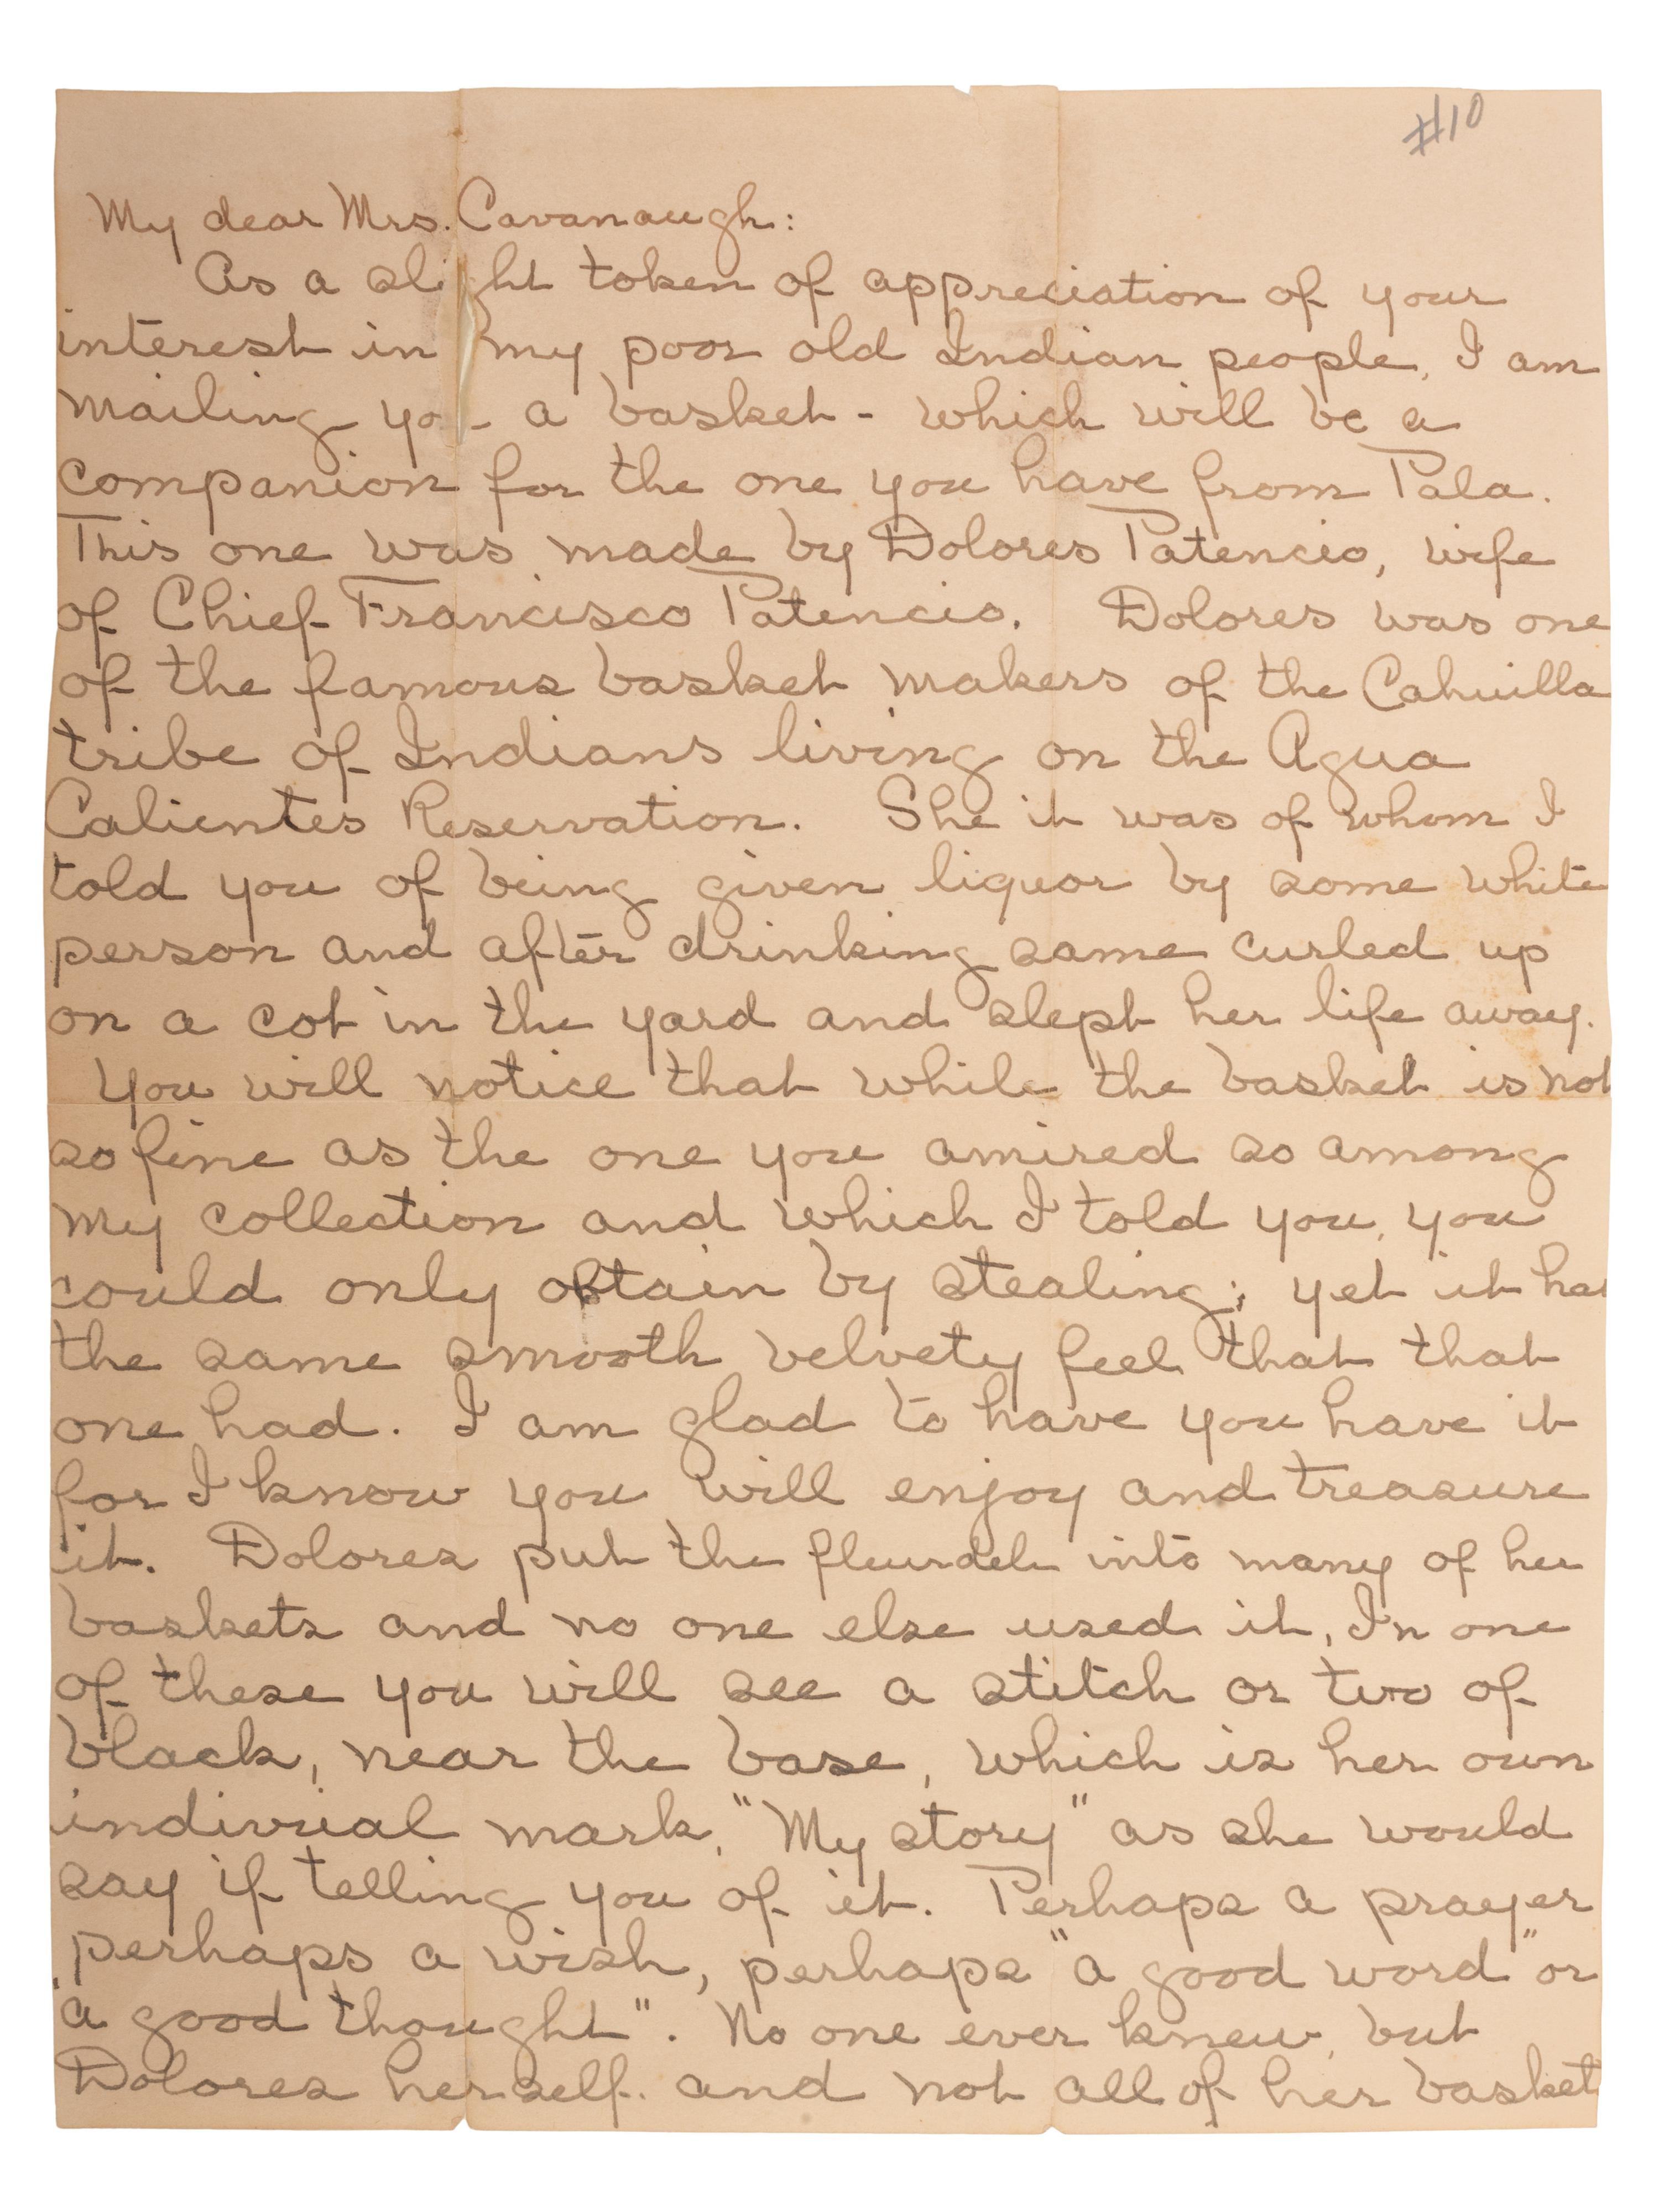 #10
My dear Mrs. Cavanaugh:
As a slight token of appreciation of your
interest in my poor old Indian people, I am
mailing yo a basket - which will be a
companion for the one you have from Pala.
This one was made by Dolores Patencio, wife
of Chief Francisco Patencio. Dolores was one
of the famous basket makers of the Cahuilla
tribe of Indians living on the Agua
Calientes Reservation. She it was of whom I
told you of being given liquor by some white
person and after drinking same curled up
on a cot in the yard and slept her life away.
You will notice that while the basket is not
so fine as the one you amired so among
my collection and which I told you, you
could only obtain by stealing; yet it has
the same smooth velvety feel that that
one had. I am glad to have you have it
for I know you will enjoy and treasure
it. Dolores put the fleurdel into many of her
baskets and no one else used it, In one
of these you will see a stitch or two of
black, near the base, which is her own
indivrial mark, "My story" as she would
say if telling you of it. Perhaps a prayer
perhaps a wish, perhaps "a good word" or
"a good thought". No one ever knew, but
Dolores herself. and not all of her basket